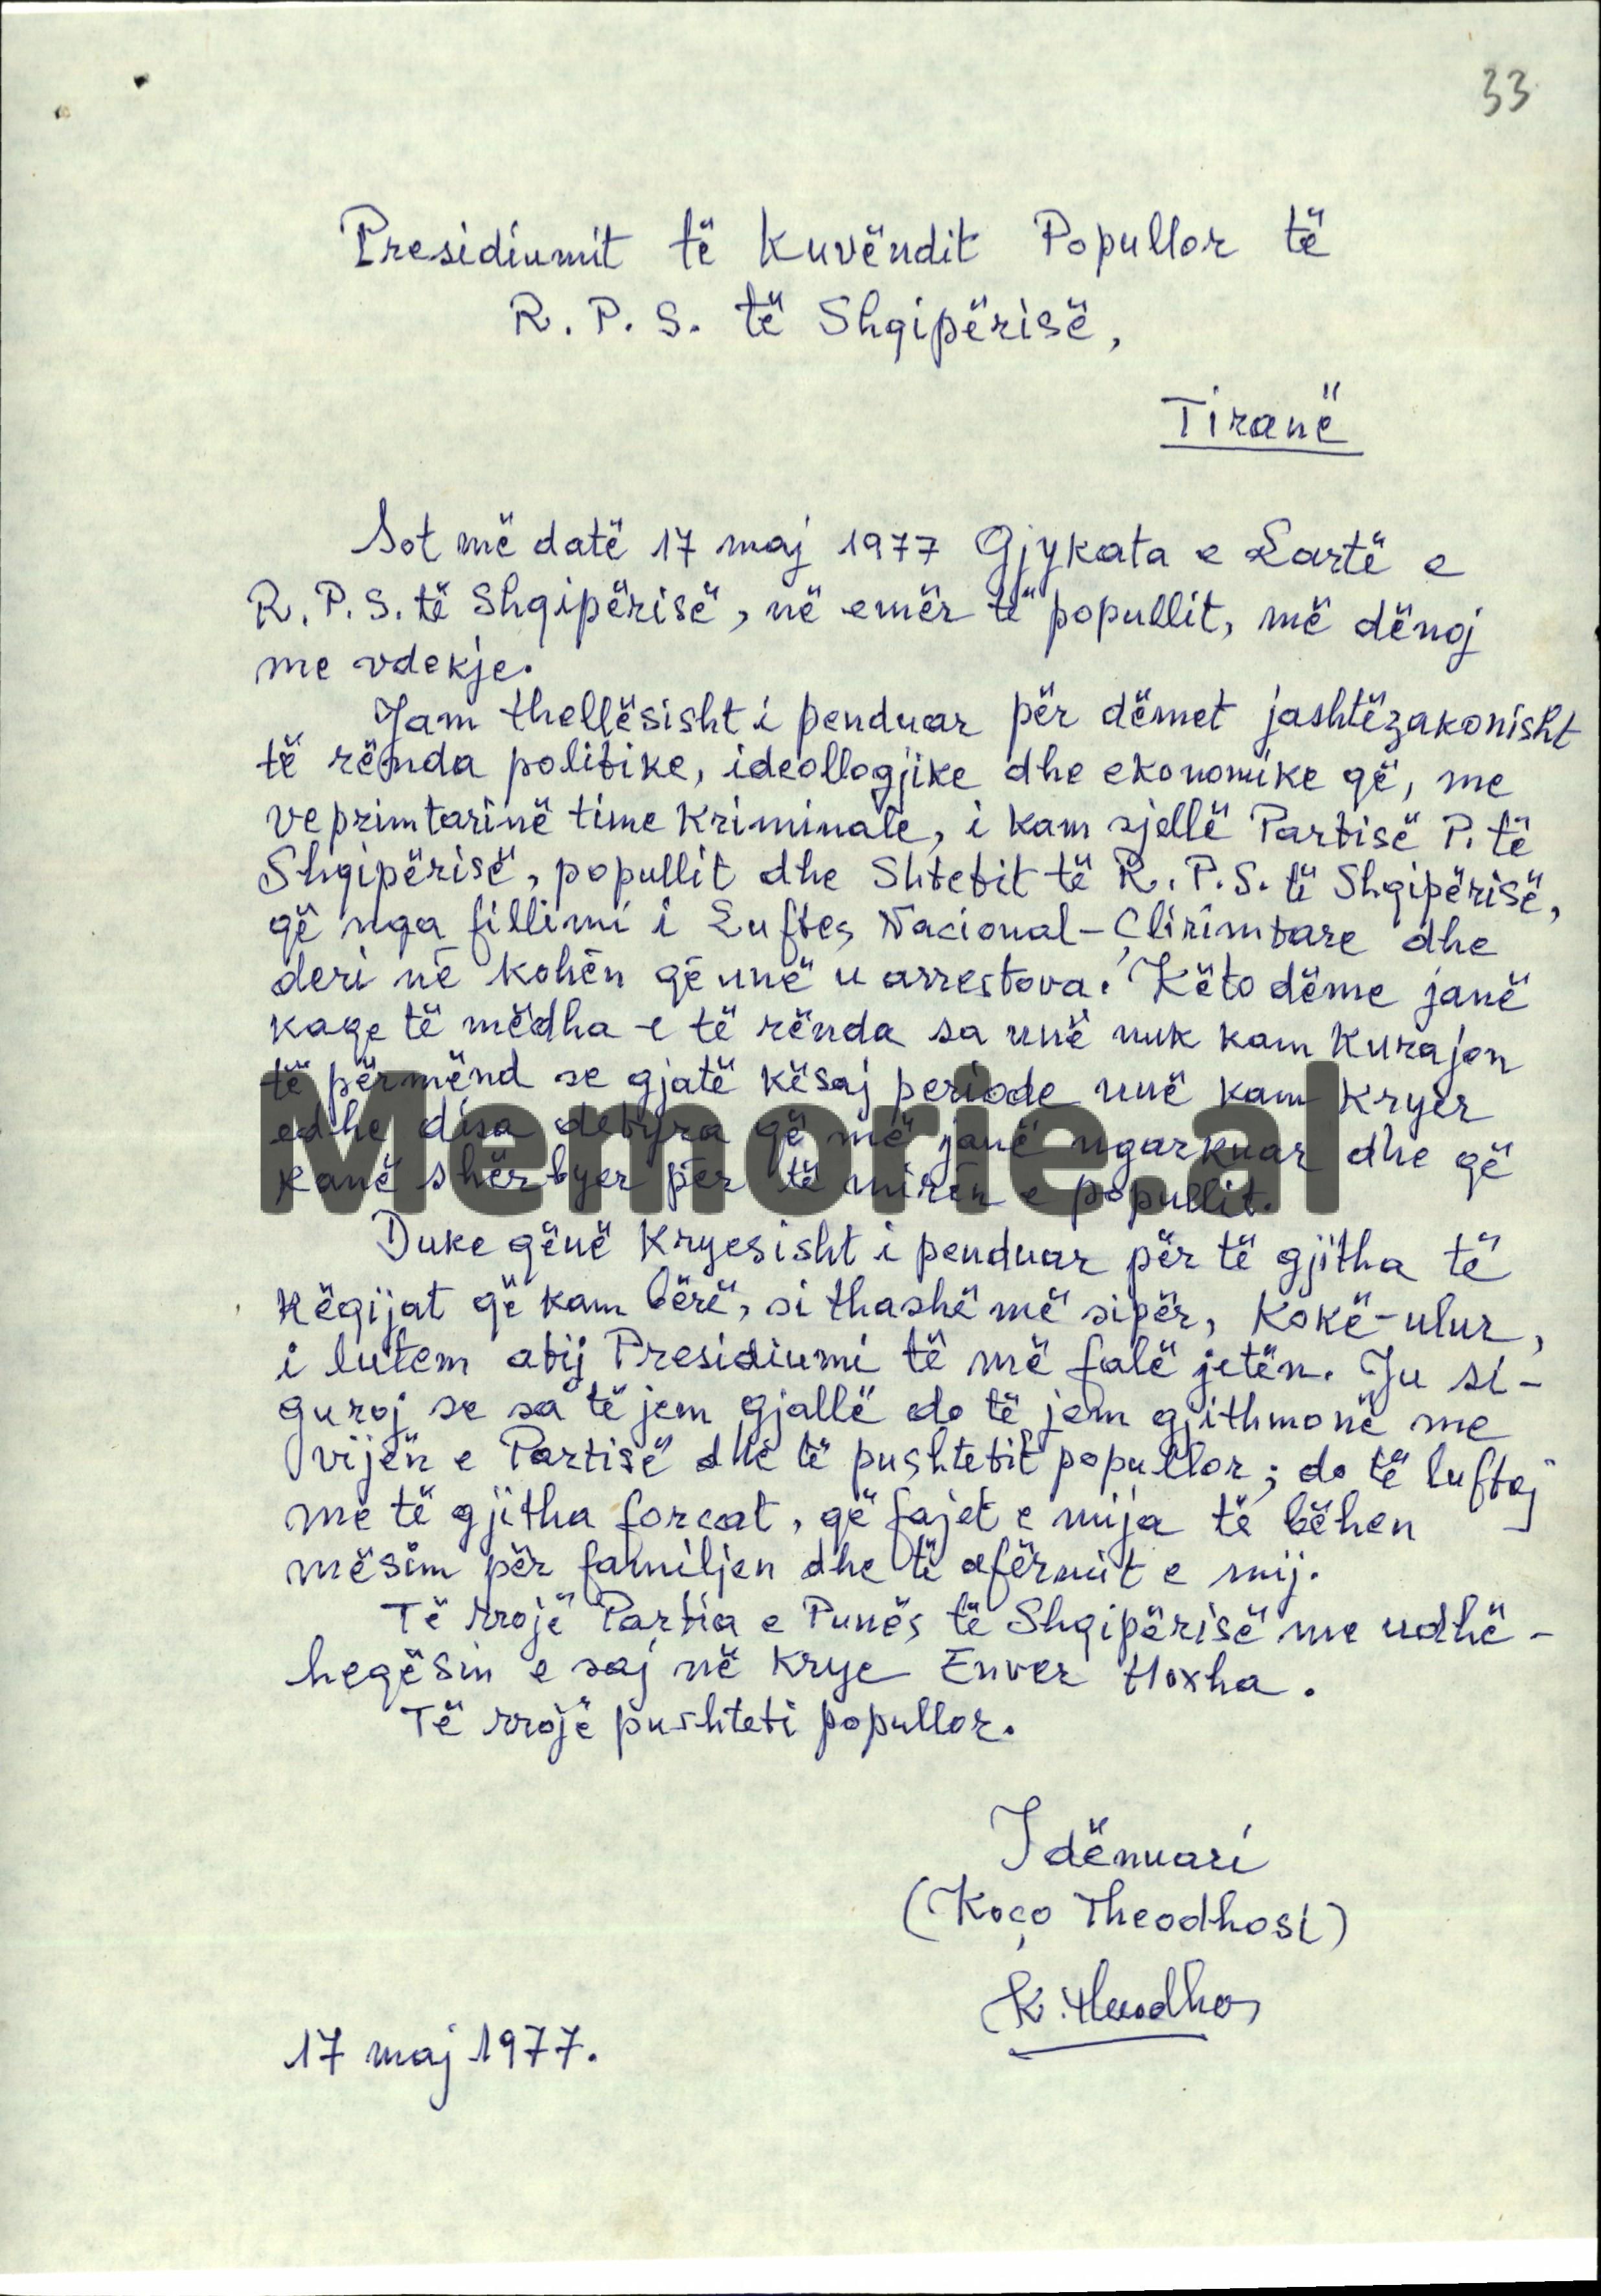 33
Presidiumit të Kuvëndit Popullor të
R. P. S. të Shqipërisë,
Tiranë
Sot më datë 17 maj 1977 Gjykata e Lartë e
R. P. S. të Shqipërisë, në emër të popullit, më dënoj
me vdekje.
Jam thellësisht i penduar për dëmet jashtëzakonisht
të rënda politike, ideollogjike dhe ekonomike që, me
veprimtarinë time kriminale, i kam sjellë Partisë P. të
Shqipërisë, popullit dhe Shtetit të R. P. S. të Shqipërisë,
që nga fillimi i Luftës Nacional-Çlirimtare dhe
deri në kohën që unë u arrestova. Këto dëme janë
kaqe të mëdha e të rënda sa unë nuk kam kurajon
të përmënd se gjatë kësaj periode unë kam kryer
edhe disa detyra që më janë ngarkuar dhe që
kanë shërbyer për të mirën e popullit.
Memorie.al
Duke qënë kryesisht i penduar për të gjitha të
këqijat që kam bërë, si thashë më sipër, kokë-ulur,
i lutem atij Presidiumi të më falë jetën. Ju si-
guroj se sa të jem gjallë do të jem gjithmonë me
vijën e Partisë dhe të pushtetit popullor; do të luftoj
me të gjitha forcat, që fajet e mija të bëhen
mësim për familjen dhe të afërmit e mij.
Të rrojë Partia e Punës të Shqipërisë me udhë-
heqësin e saj në krye Enver Hoxha.
Të rrojë pushteti popullor.
I dënuari
(Koço Theodhosi)
K. Theodhos
17 maj 1977.